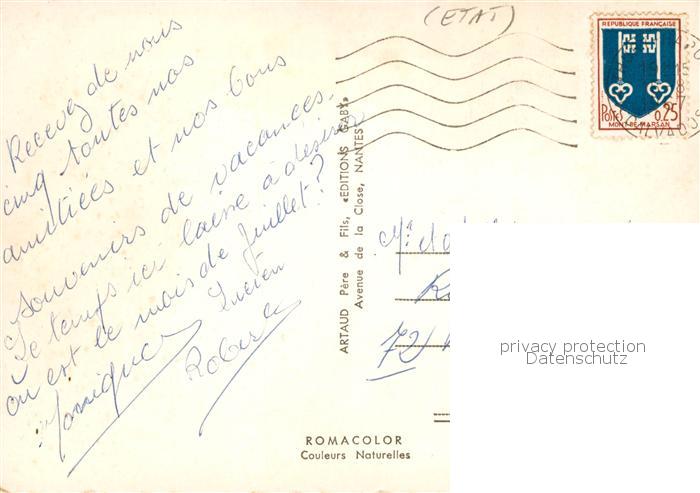 (ETAT)
REPUBLIQUE FRANÇAISE
POSTES 0,25
MONT-DE-MARSAN
CALVADOS
Recevez de nous
cinq toutes nos
amitiées et nos bons
souvenirs de vacances.
Le temps ici laisse à désirer
où est le mois de Juillet?
Monique Lucien
Roberte
ARTAUD Père & Fils, «EDITIONS GABY»
Avenue de la Close, NANTES
72
privacy protection
Datenschutz
ROMACOLOR
Couleurs Naturelles